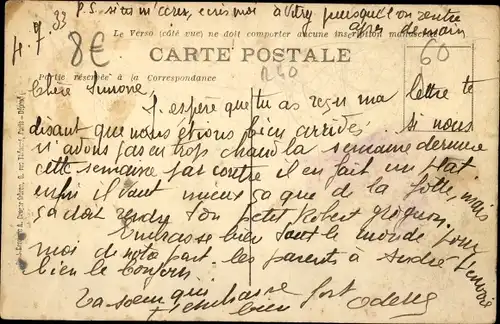 4.7.33
P.S. si tu m'écris, écris moi à Vitry puisqu'on rentre
après demain
8€
Le Verso (côté vue) ne doit comporter aucune inscription manuscrite
CARTE POSTALE
60
Partie réservée à la Correspondance
R60
Chère Simone,
J'espère que tu as reçu ma lettre te
disant que nous étions bien arrivés. si nous
n'avons pas eu trop chaud la semaine dernière
cette semaine par contre il en fait un plat
enfin il vaut mieux ça que de la flotte, mais
ça doit rendre ton petit Robert grognon.
Embrasse bien tout le monde pour
moi de notre part. les parents à André
bien le bonjour
Ta soeur qui
t'embrasse bien fort
Odette